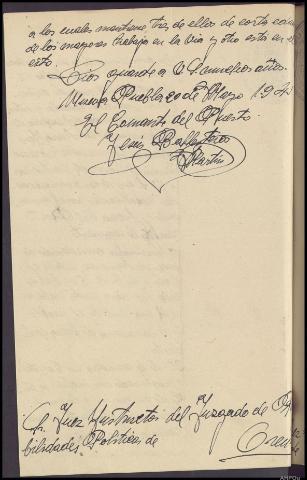 a los cuales mantiene, tres de ellos de corta
de los mayores trabaja en la via y otro esta en
Dios guarde a V. S. muchos años.
Puebla 20 de Mayo 194
El Comandte del Puesto.
Jesus Ballesteros
Martin
Sr. Juez Instructor del Juzgado de
bilidades Politicas de